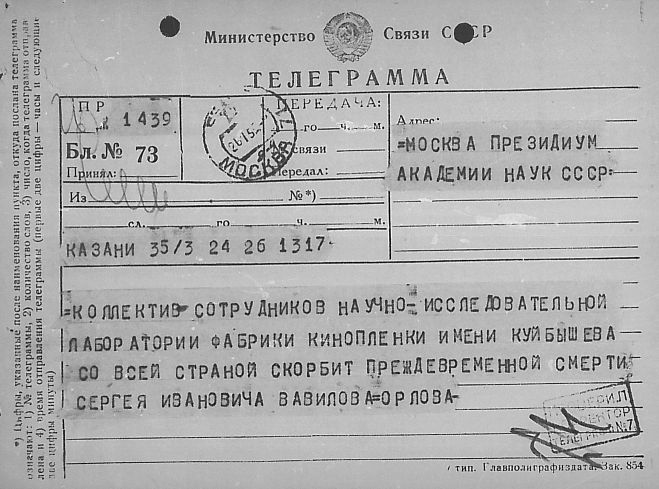 Министерство Связи СССР
ТЕЛЕГРАММА
ПР
1439
Бл. № 73
Принял:
МОСКВА
ПЕРЕДАЧА:
го ч. м.
связи
Передал:
Адрес:
=МОСКВА ПРЕЗИДИУМ
АКАДЕМИИ НАУК СССР=
Из №*)
сл. го ч. м.
КАЗАНИ 35/3 24 26 1317
=КОЛЛЕКТИВ СОТРУДНИКОВ НАУЧНО-ИССЛЕДОВАТЕЛЬНОЙ
ЛАБОРАТОРИИ ФАБРИКИ КИНОПЛЕНКИ ИМЕНИ КУЙБЫШЕВА
СО ВСЕЙ СТРАНОЙ СКОРБИТ ПРЕЖДЕВРЕМЕННОЙ СМЕРТИ
СЕРГЕЯ ИВАНОВИЧА ВАВИЛОВА=ОРЛОВА-
ТЕЛЕГРАФ №7
тип. Главполиграфиздата. Зак. 854
*) Цифры, указанные после наименования пункта, откуда послана телеграмма
означают: 1) № телеграммы, 2) количество слов, 3) число, когда телеграмма отправ
лена и 4) время отправления телеграммы (первые две цифры — часы и следующие
две цифры минуты)